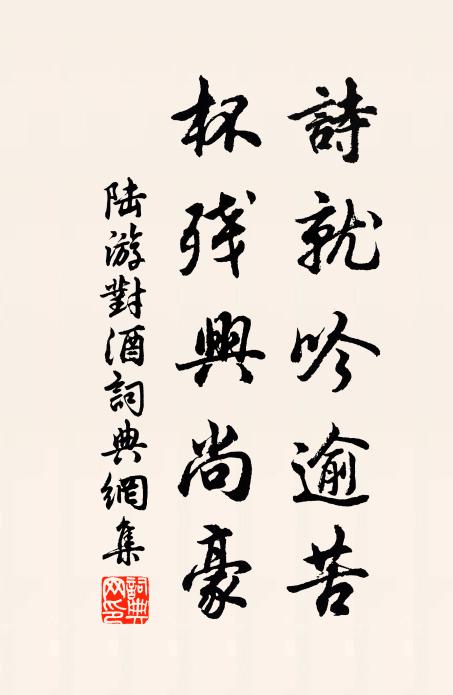 詩就吟逾苦
杯殘興尚豪
陆游對酒詞典網集
詞典网印